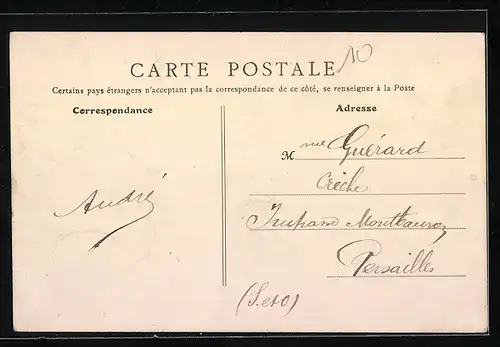 10
CARTE POSTALE
Certains pays étrangers n'acceptant pas la correspondance de ce côté, se renseigner à la Poste
Correspondance
Adresse
Mme Guérard
Crèche
Impasse Montbauron
Versailles
(S et O)
André